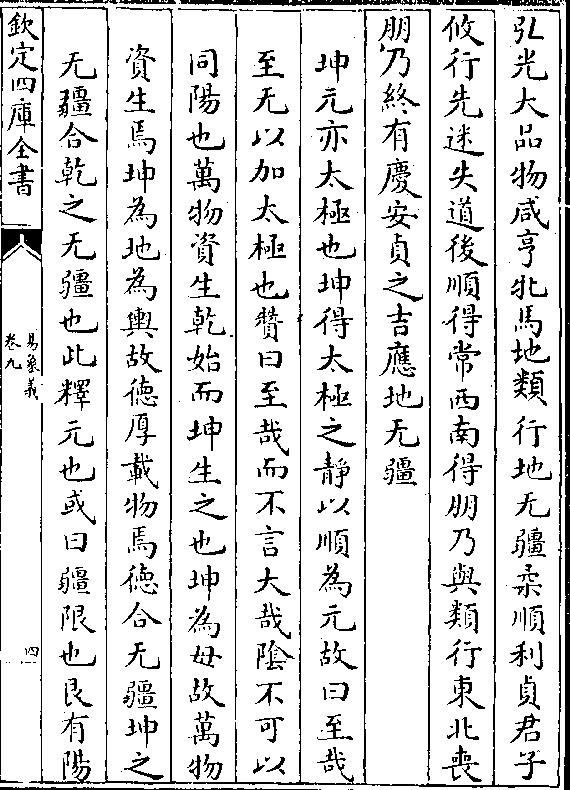 弘光大品物咸亨牝馬地類行地无疆柔順利貞君子
攸行先迷失道後順得常西南得朋乃與類行東北喪
朋乃終有慶安貞之吉應地无疆
坤元亦太極也坤得太極之靜以順為元故曰至哉
至无以加太極也贊曰至哉而不言大哉隂不可以
同陽也萬物資生乾始而坤生之也坤為母故萬物
資生焉坤為地為輿故德厚載物焉德合无疆坤之
无疆合乾之无疆也此釋元也或曰疆限也艮有陽
欽定四庫全書
易象義
卷九
四